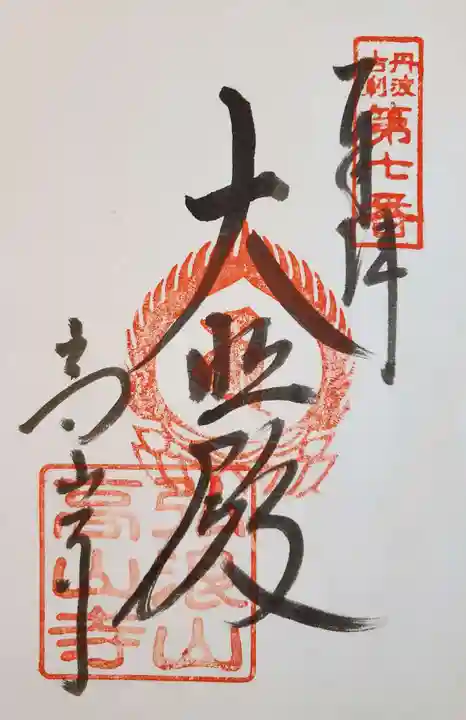 奉拝
丹波
古刹
第七番
大悲殿
弘浪山
高山寺
高山寺